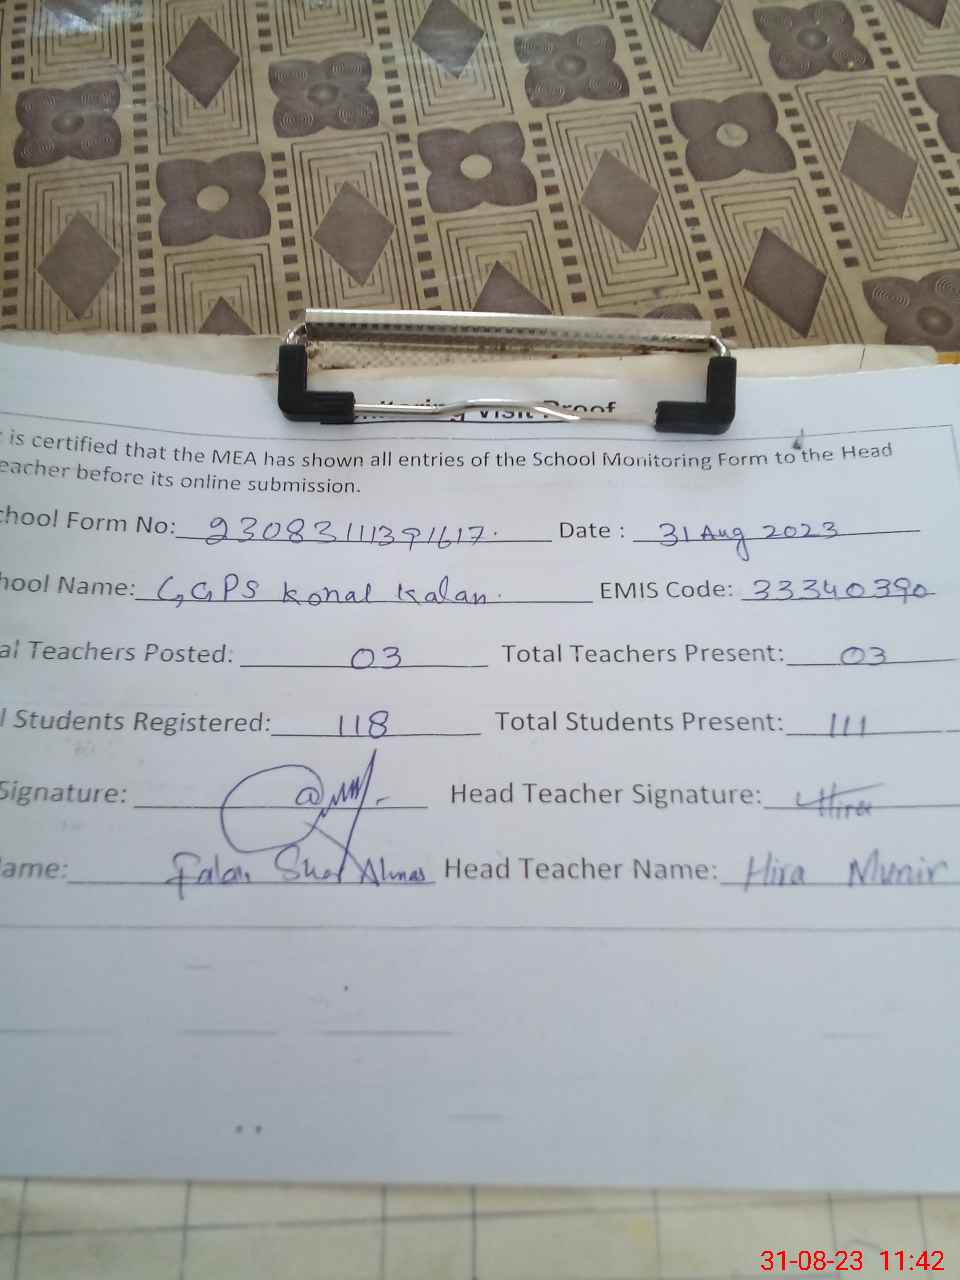 Visit Proof
is certified that the MEA has shown all entries of the School Monitoring Form to the Head
eacher before its online submission.
chool Form No: 23083111391617. Date : 31 Aug 2023
hool Name: GGPS Konal Kalan. EMIS Code: 33340390
al Teachers Posted: 03 Total Teachers Present: 03
l Students Registered: 118 Total Students Present: 111
Signature: Head Teacher Signature: Hira
ame: Falak Sher Almas Head Teacher Name: Hira Munir
31-08-23 11:42